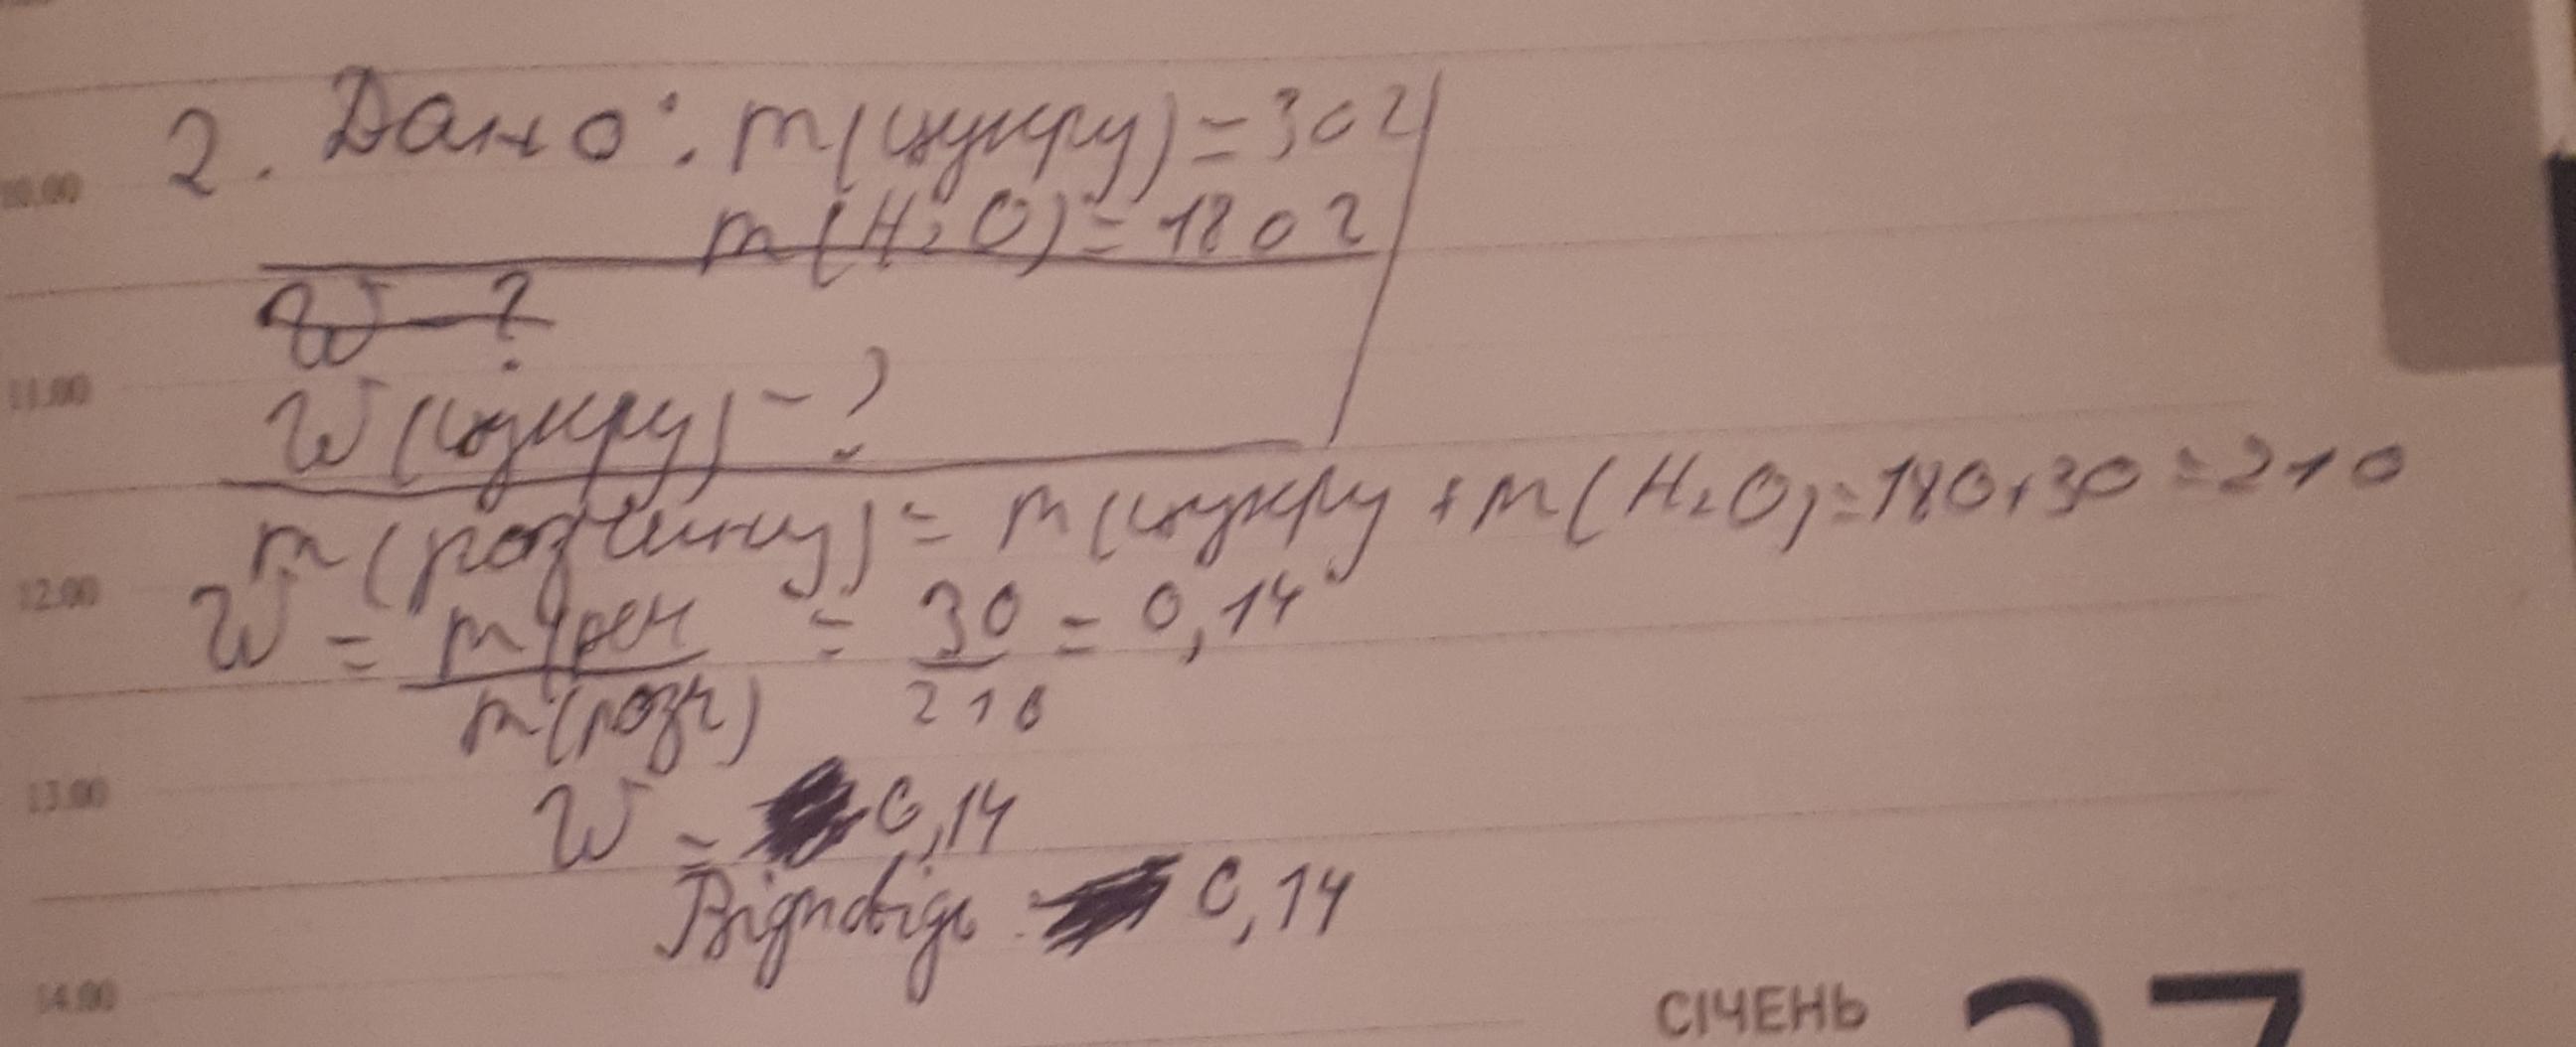 10.00
2. Дано: m(цукру)=30г
m(H2O)=180г
W-?
11.00
W(цукру)-?
m(розчину)=m(цукру+m(H2O)=180+30=210
12.00
W = m(реч / m(розч) = 30/210 = 0,14
13.00
W = 0,14
Відповідь 0,14
14.00
СІЧЕНЬ 27